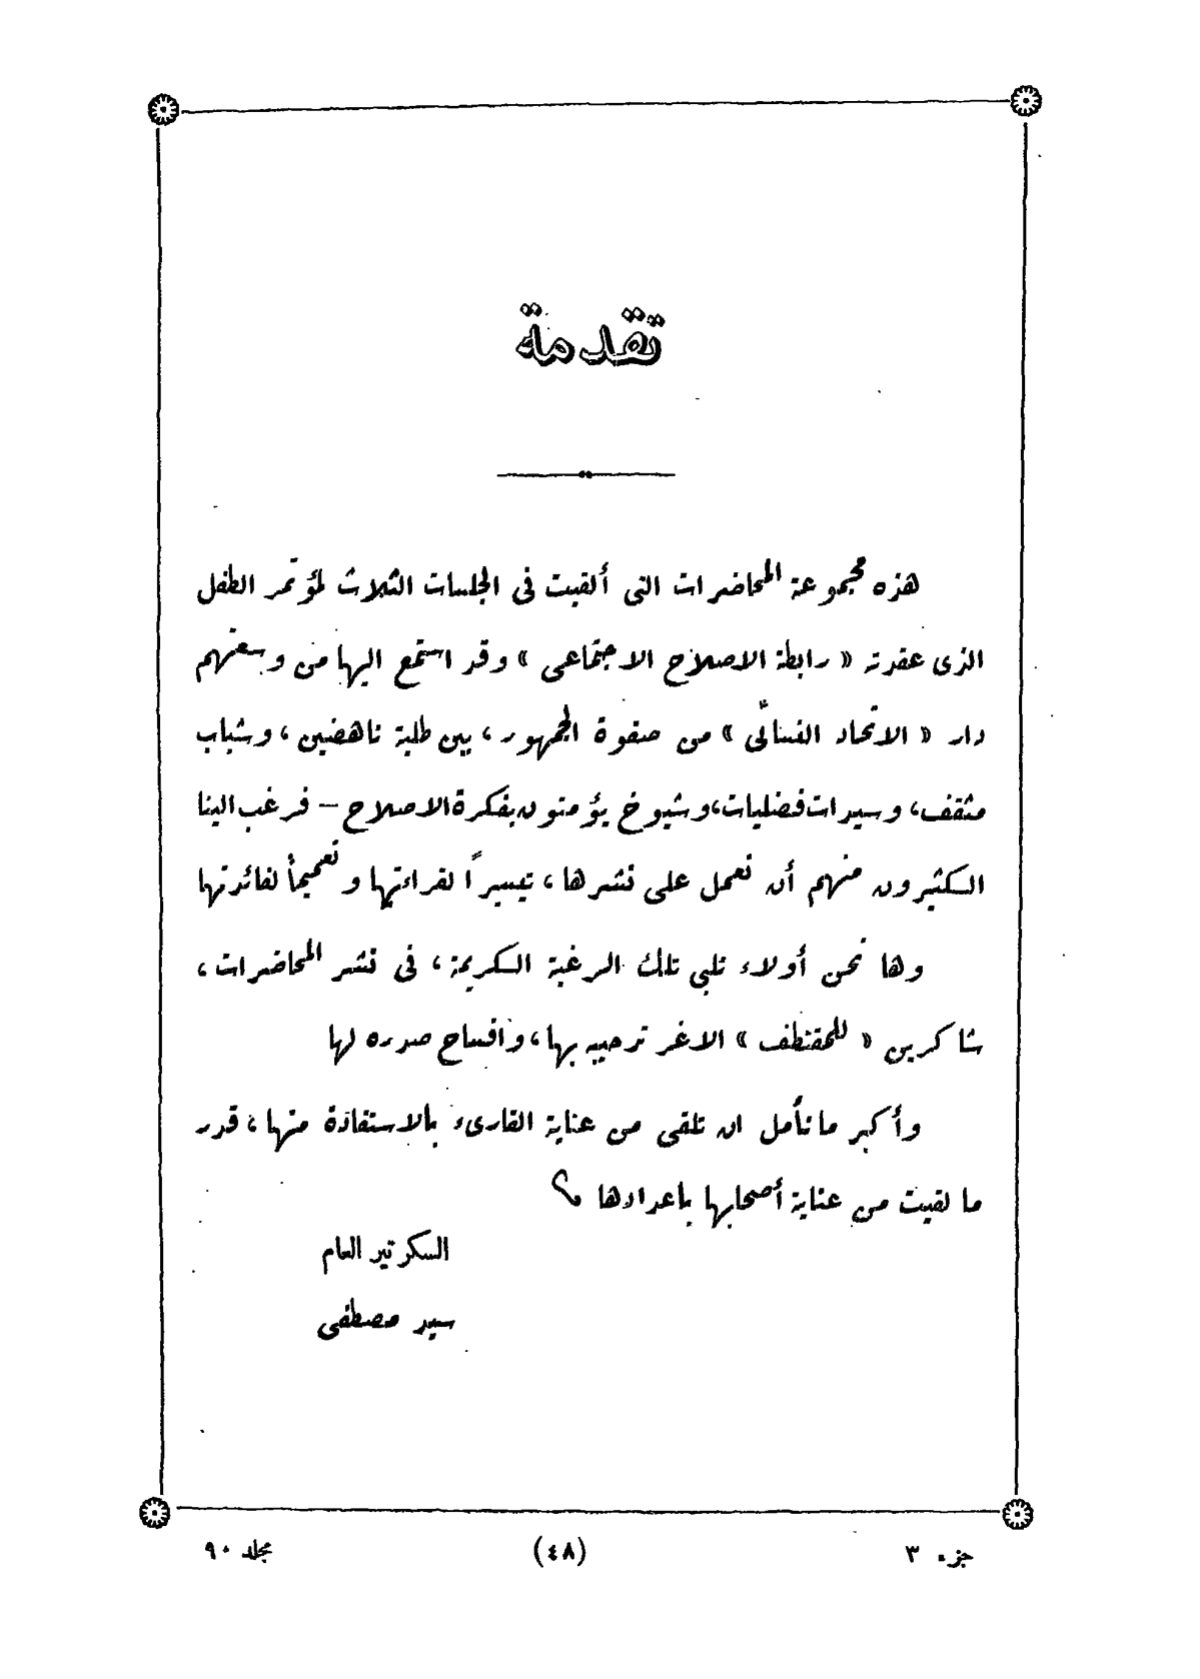 تقدمة
هذه مجموعة المحاضرات التى ألقيت فى الجلسات الثلاث لمؤتمر الطفل
الذى عقدته « رابطة الاصلاح الاجتماعى » وقد استمع اليها من وسعتهم
دار « الاتحاد النسائى » من صفوة الجمهور ، بين طلبة ناهضين ، وشباب
مثقف، وسيدات فضليات، وشيوخ يؤمنون بفكرة الاصلاح – فرغب الينا
الكثيرون منهم أن نعمل على نشرها ، تيسيراً لقراءتها وتعميماً لفائدتها
وها نحن أولاء نلبى تلك الرغبة الكريمة ، فى نشر المحاضرات ،
شاكرين « للمقتطف » الاغر ترحيبه بها ، وافساح صدره لها
وأكبر ما نأمل ان تلقى من عناية القارىء بالاستفادة منها ، قدر
ما لقيت من عناية أصحابها باعدادها
السكرتير العام
سيد مصطفى
جزء ٣
(٤٨)
مجلد ٩٠